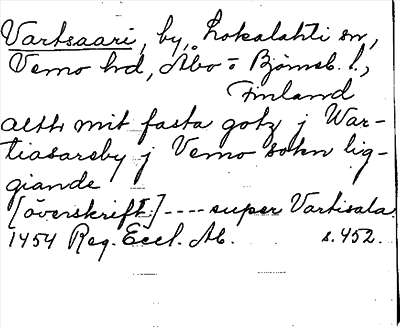 Vartsaari, by, Lokalahti sn,
Vemo hd, Åbo o Björneb. l.,
Finland
alth mit fasta gotz j War-
tiasarsby j Vemo sokn lig-
giande
[överskrift:] ---- super Vartisala.
1454 Reg. Eccl. Ab. s. 452.